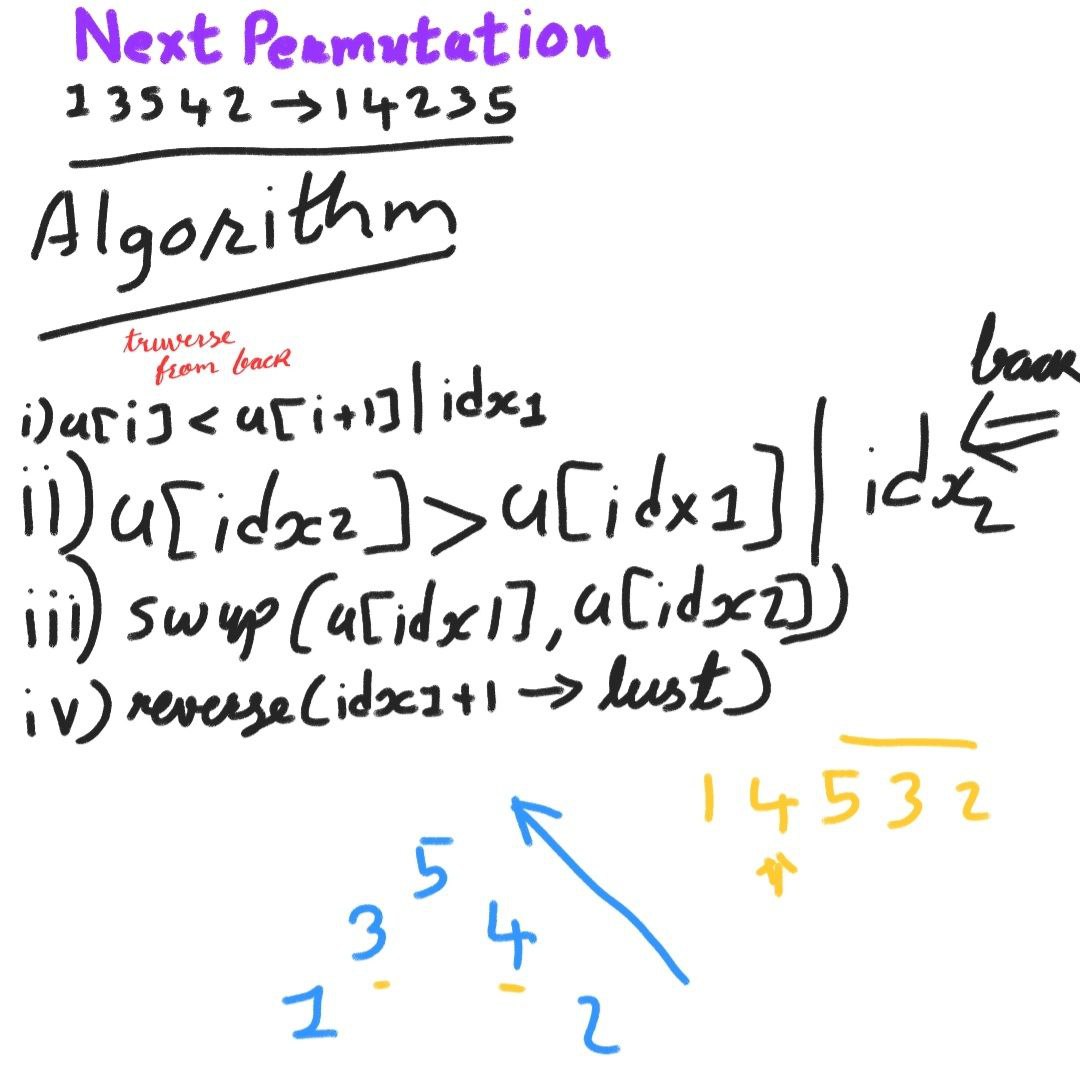 Next Permutation
1 3 5 4 2 → 1 4 2 3 5
Algorithm
traverse
from back
back
i) a[i] < a[i+1] | idx1
ii) a[idx2] > a[idx1] | idx2
iii) swap(a[idx1], a[idx2])
iv) reverse(idx1+1 → last)
1 4 5 3 2
5
3 4
1 2